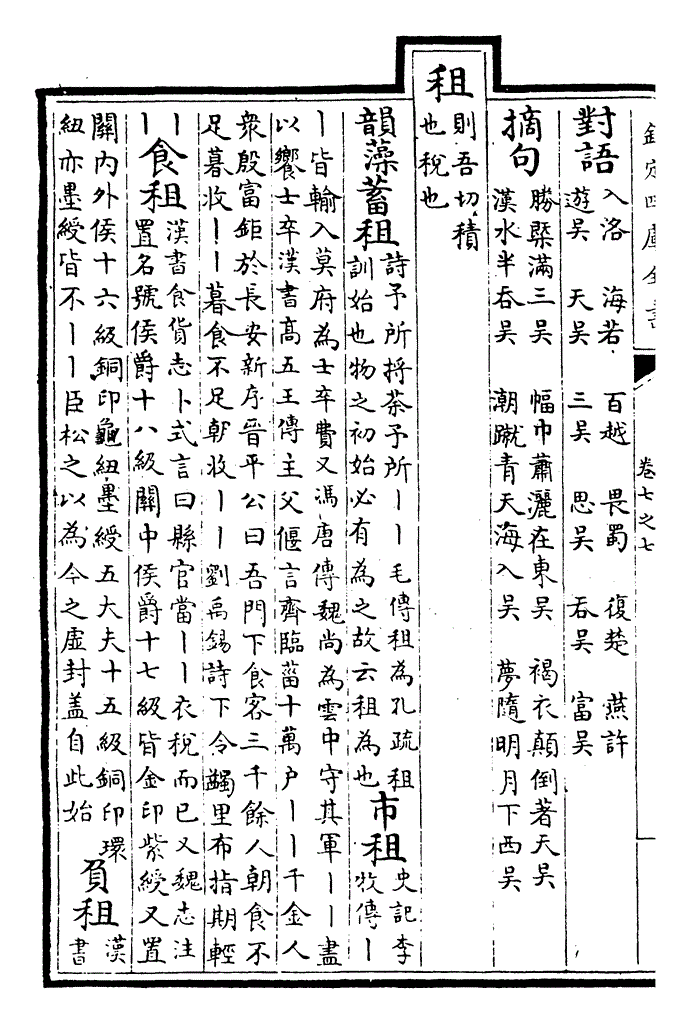 欽定四庫全書
卷七之七
對語
入洛 海若 百越 畏蜀 復楚 燕許
遊吳 天吳 三吳 思吳 吞吳 富吳
摘句
勝槩滿三吳 幅巾蕭灑在東吳 褐衣顛倒著天吳
漢水半吞吳 潮蹴青天海入吳 夢隨明月下西吳
租
則吾切積
也稅也
韻藻蓄租
詩予所捋荼予所丨丨毛傳租為孔疏租
訓始也物之初始必有為之故云租為也
市租
史記李
牧傳丨
丨皆輸入莫府為士卒費又馮唐傳魏尚為雲中守其軍丨丨盡
以饗士卒漢書高五王傳主父偃言齊臨菑十萬户丨丨千金人
衆殷富鉅於長安新序晉平公曰吾門下食客三千餘人朝食不
足暮收丨丨暮食不足朝收丨丨劉禹錫詩下令蠲里布指期輕
丨
丨
食租
漢書食貨志卜式言曰縣官當丨丨衣稅而已又魏志注
置名號侯爵十八級關中侯爵十七級皆金印紫綬又置
關內外侯十六級銅印龜紐墨綬五大夫十五級銅印環
紐亦墨綬皆不丨丨臣松之以為今之虛封蓋自此始
負租
漢
書